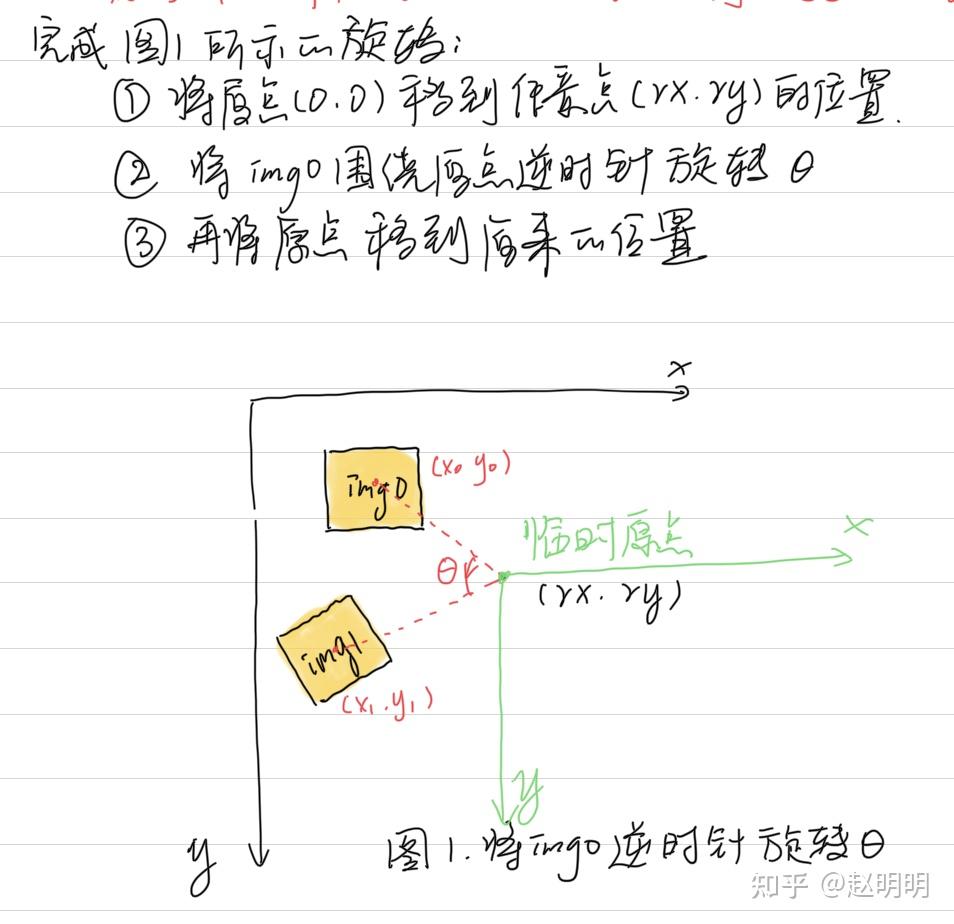 完成图1所示的旋转:
① 将原点(0.0)移到任意点(rx.ry)的位置.
② 将img0围绕原点逆时针旋转θ
③ 再将原点移到原来的位置
x
img0
(x₀ y₀)
临时原点
x
θ
(rx. ry)
img1
(x₁.y₁)
y
y
图1.将img0逆时针旋转θ
知乎 @赵明明